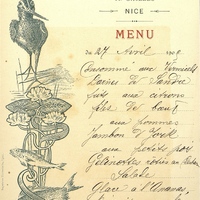 NICE
MENU
du 27 Avril 190
Consommé aux Vermicelle
Darnes de Sandre
frits aux citrons
filet de bœuf
aux pommes
Jambon d'York
aux petits pois
Gelinottes rôties au
Salade
Glace à l'Ananas,